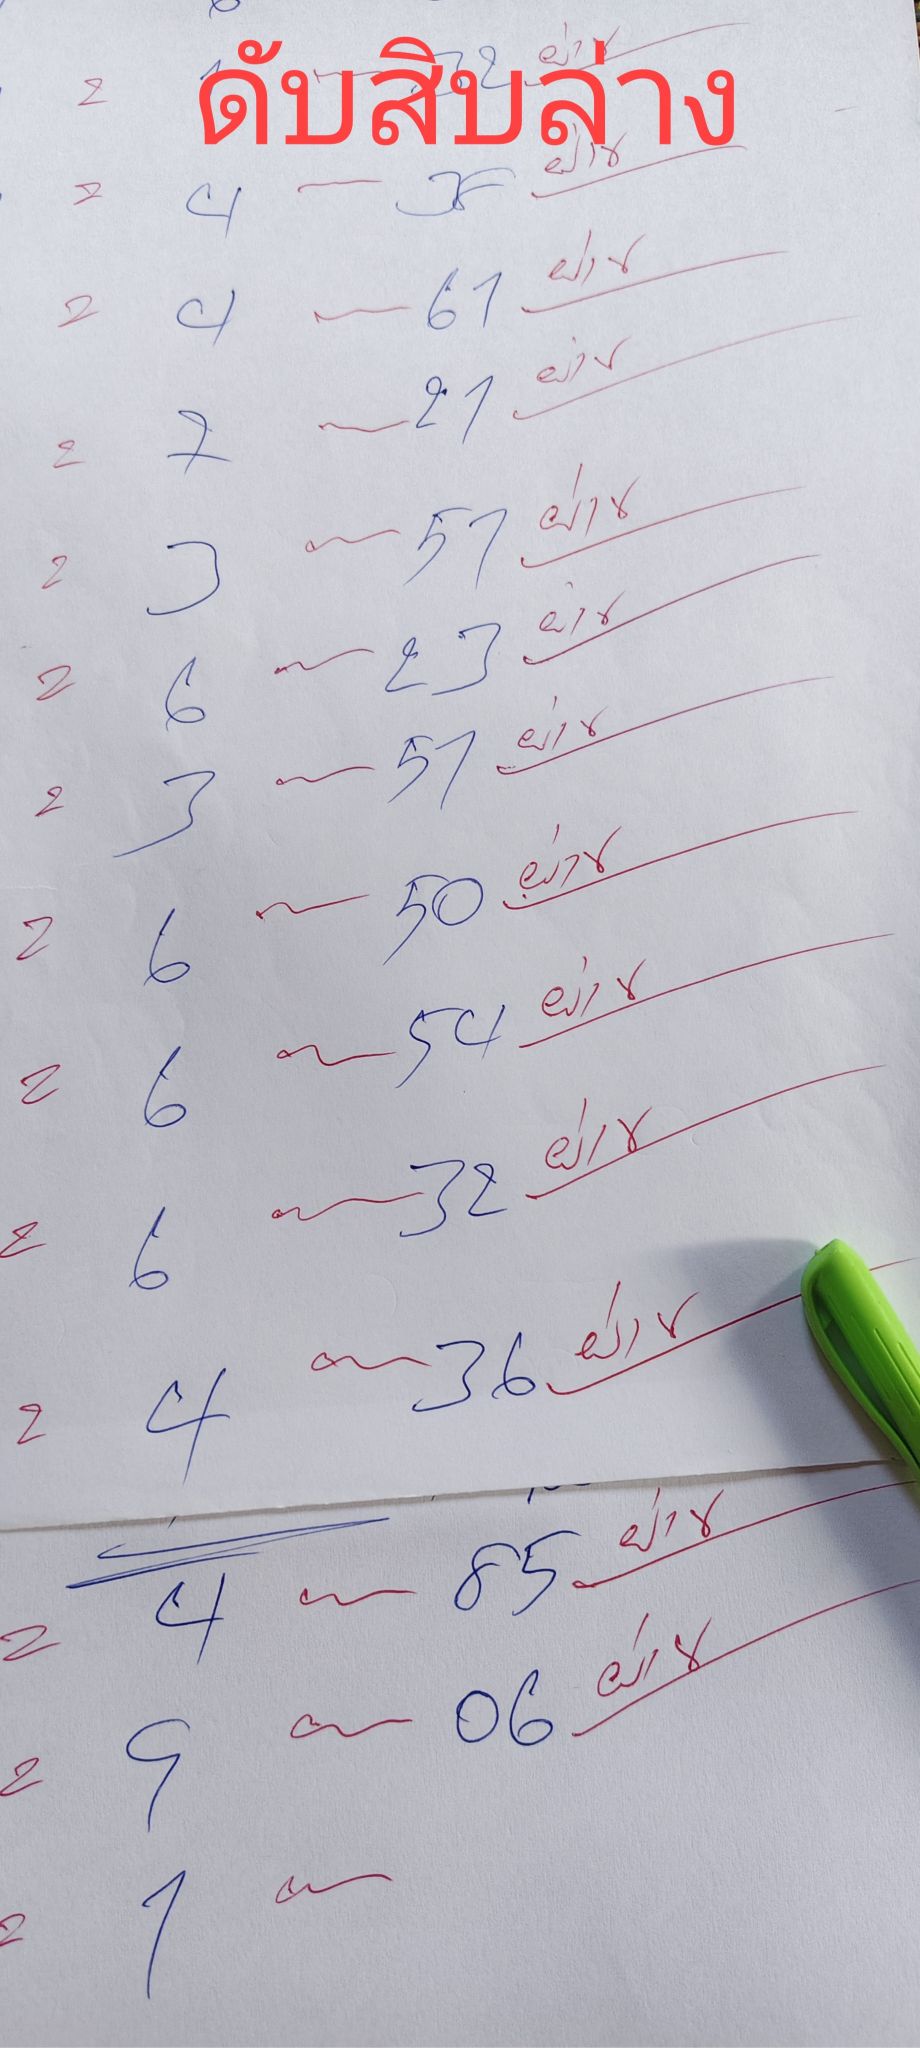 ดับสิบล่าง
2 1 32 ผ่าน
2 4 — 38 ผ่าน
2 4 — 61 ผ่าน
2 7 — 21 ผ่าน
2 3 — 51 ผ่าน
2 6 — 23 ผ่าน
2 3 — 51 ผ่าน
2 6 — 50 ผ่าน
2 6 — 54 ผ่าน
2 6 — 32 ผ่าน
2 4 — 36 ผ่าน
2 4 — 85 ผ่าน
2 9 — 06 ผ่าน
2 1 —